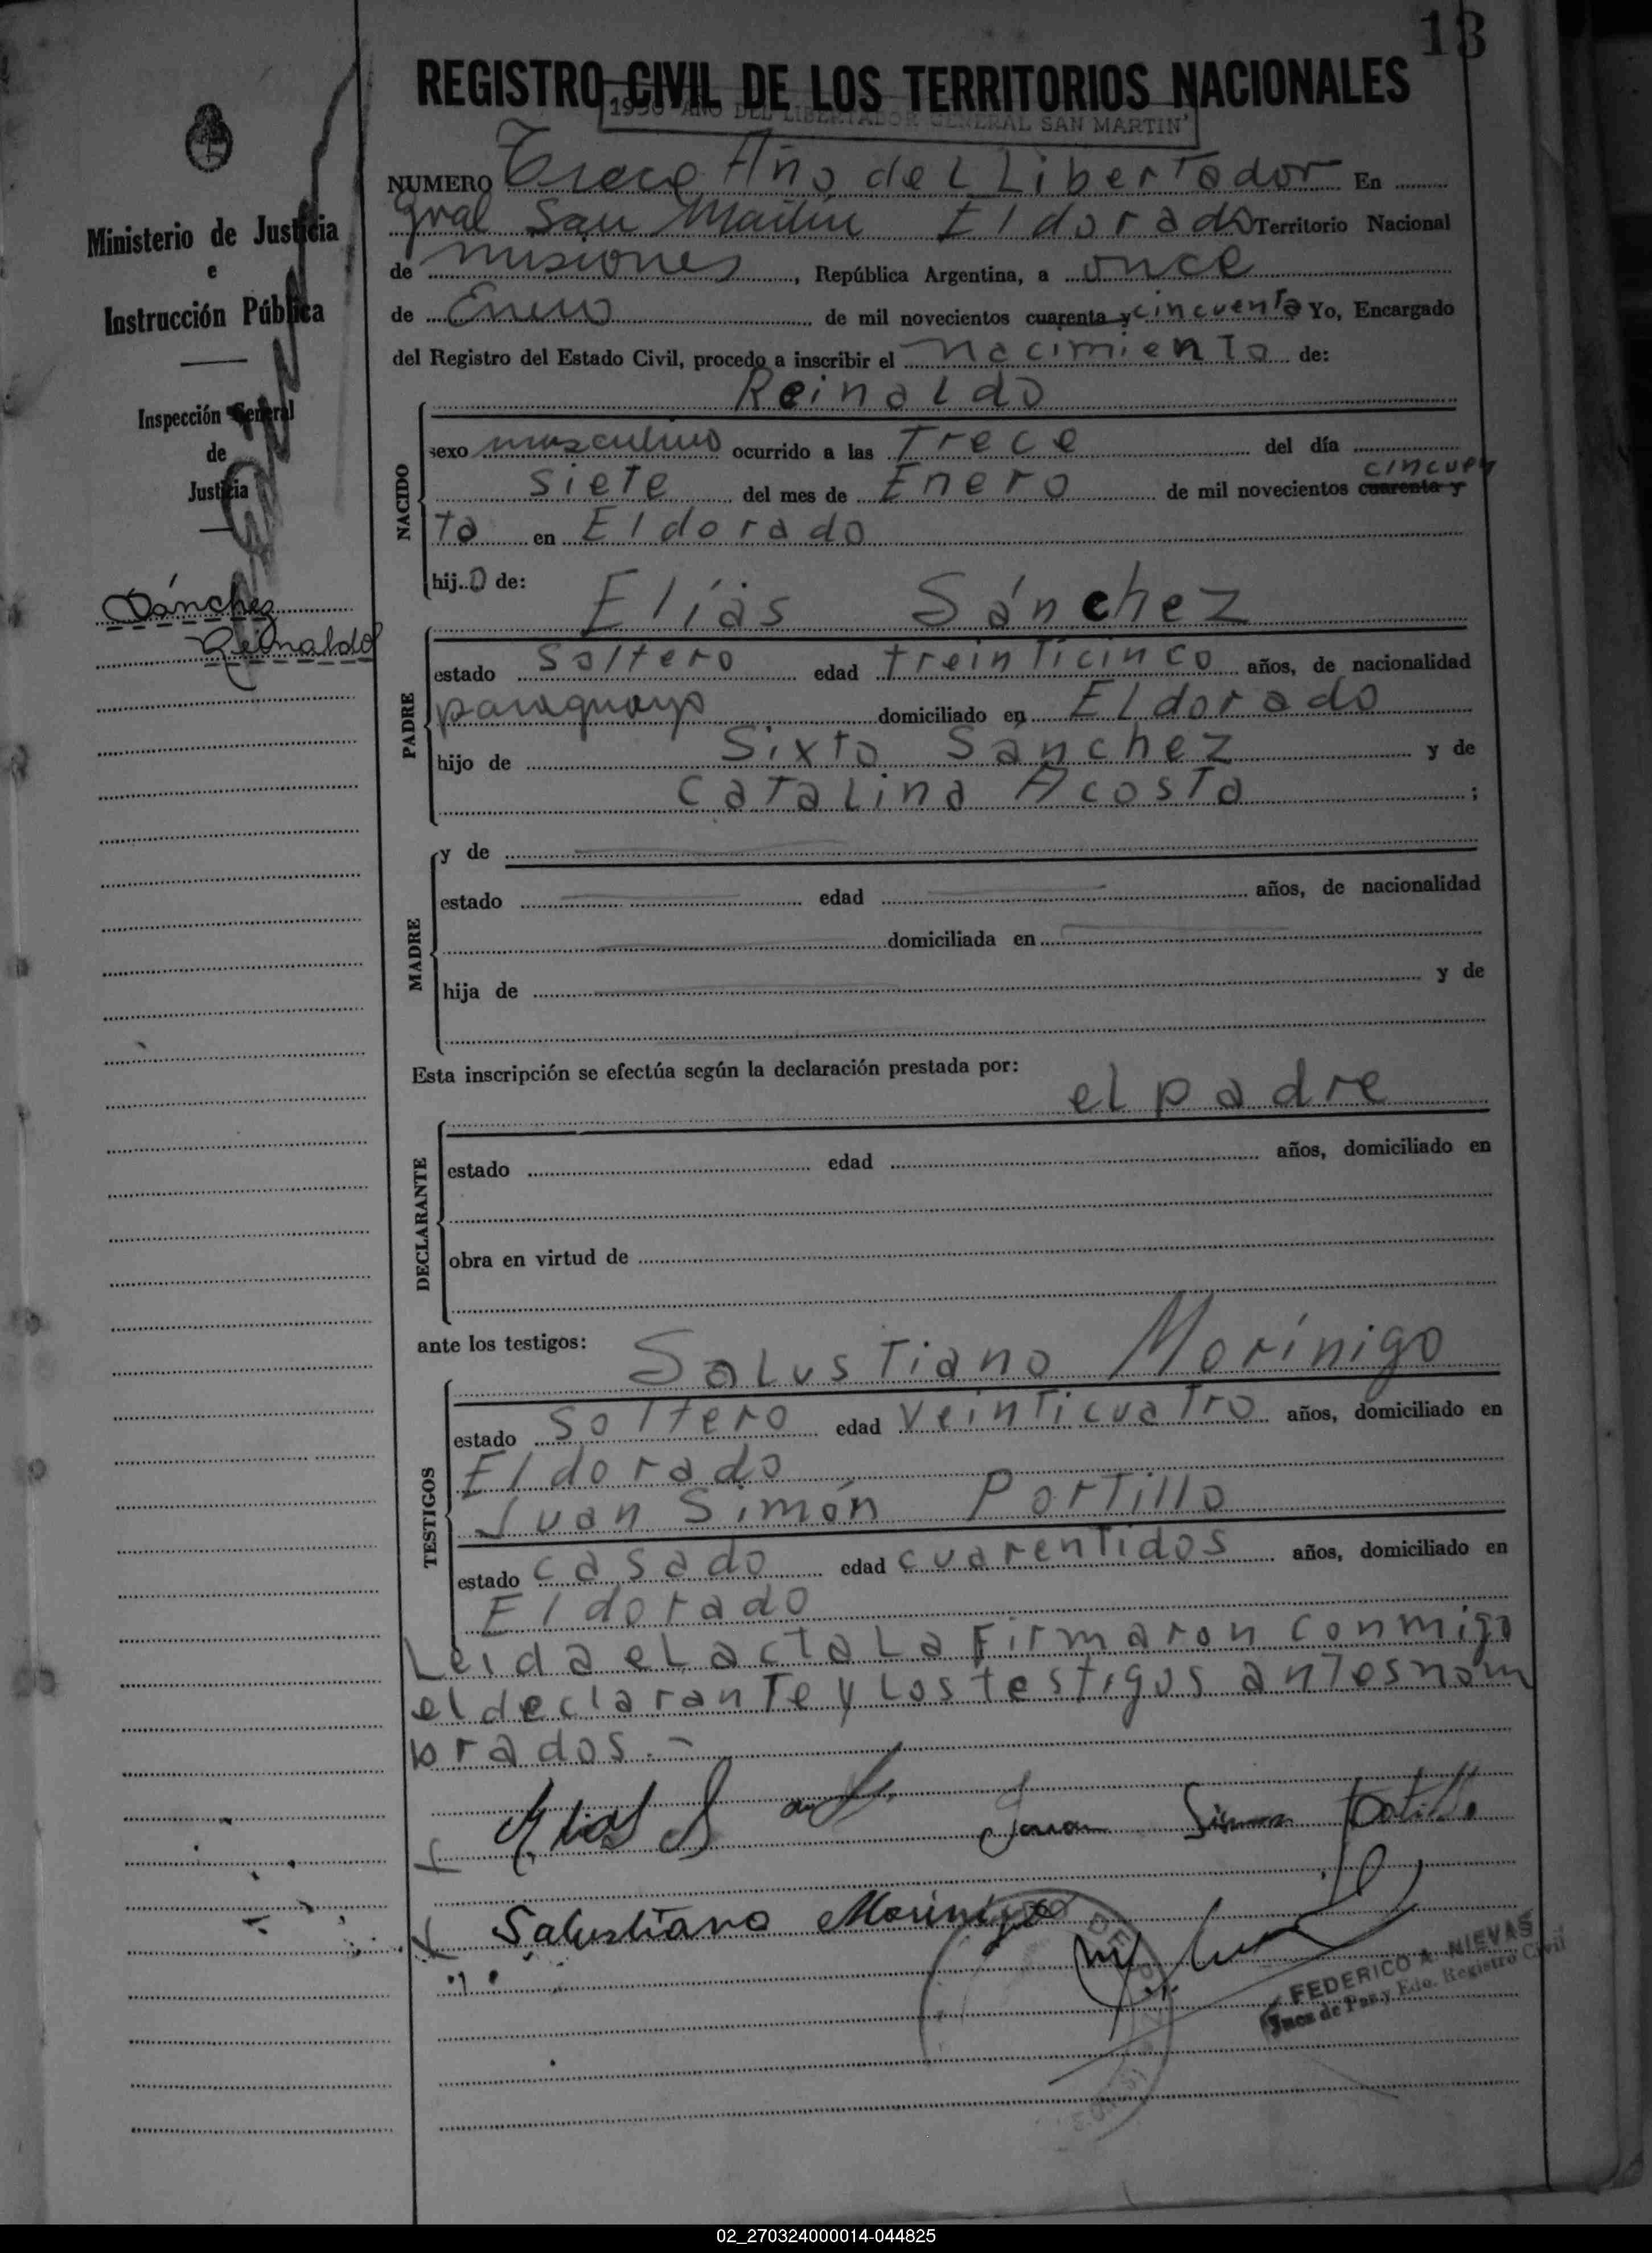 13
REGISTRO CIVIL DE LOS TERRITORIOS NACIONALES
1950 AÑO DEL LIBERTADOR GENERAL SAN MARTIN
NUMERO Trece Año del Libertador En
Gral San Martín Eldorado Territorio Nacional
de Misiones, República Argentina, a once
de Enero de mil novecientos cuarenta y cincuenta Yo, Encargado
del Registro del Estado Civil, procedo a inscribir el nacimiento de:
Reinaldo
NACIDO
sexo masculino ocurrido a las Trece del día
siete del mes de Enero de mil novecientos cuarenta y cincuen
ta en Eldorado
hijo de:
Elías Sánchez
PADRE
estado Soltero edad treinticinco años, de nacionalidad
paraguayo domiciliado en Eldorado
hijo de Sixto Sánchez y de
Catalina Acosta ;
MADRE
y de
estado edad años, de nacionalidad
domiciliada en
hija de y de
Esta inscripción se efectúa según la declaración prestada por:
el padre
DECLARANTE
estado edad años, domiciliado en
obra en virtud de
ante los testigos:
Salustiano Morínigo
TESTIGOS
estado Soltero edad Veinticuatro años, domiciliado en
Eldorado
Juan Simón Portillo
estado casado edad cuarentidos años, domiciliado en
Eldorado
Leida el acta la firmaron conmigo
el declarante y los testigos antes nom
brados.-
Elias Juan Simon Portillo
Salustiano Morinigo
FEDERICO A. NIEVAS
Juez de Paz y Edo. Registro Civil
Ministerio de Justicia
e
Instrucción Pública
Inspección General
de
Justicia
Sánchez
Reinaldo
02_270324000014-044825